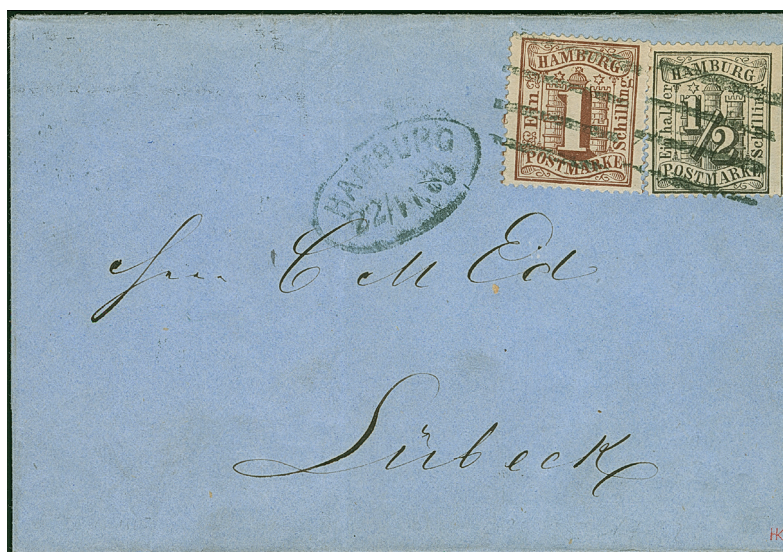 HAMBURG
Ein
1
Schilling
POSTMARKE
HAMBURG
Ein halber
1/2
Schilling
POSTMARKE
HAMBURG
22/11
Herrn C M Ed
Lübeck
HK